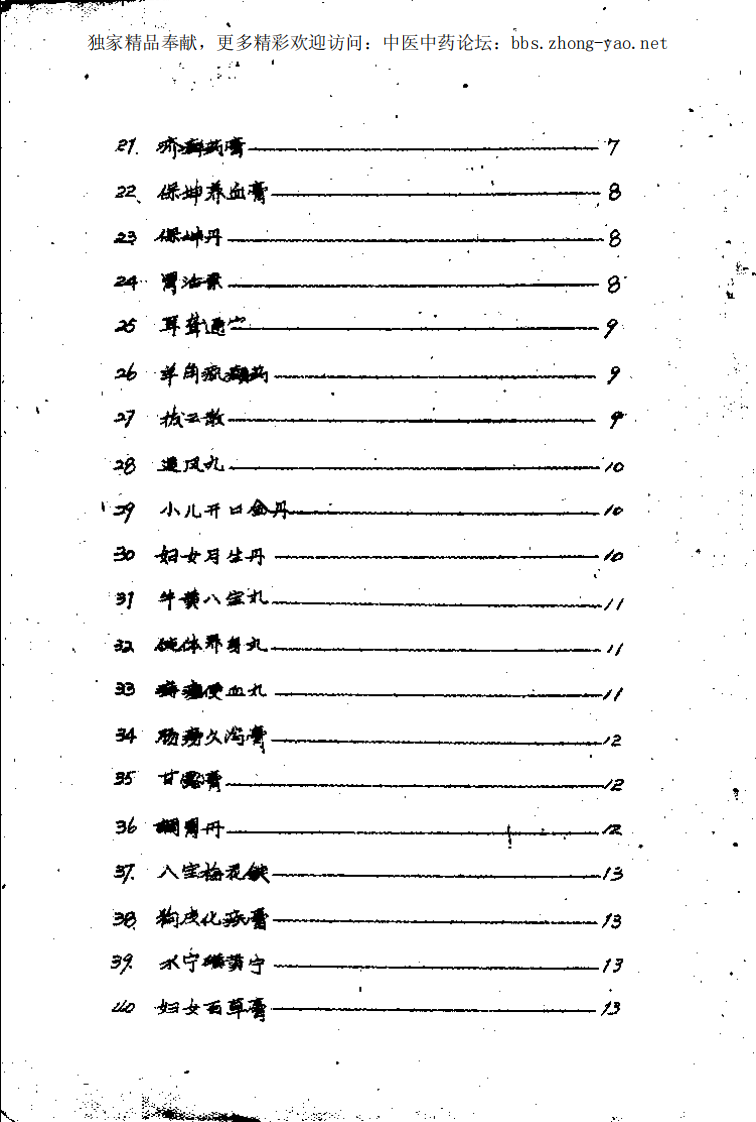 独家精品奉献，更多精彩欢迎访问：中医中药论坛：bbs.zhong-yao.net
21. 疥癣药膏 7
22、保坤养血膏 8
23 保坤丹 8
24 胃治 8
25 耳聋通 9
26 羊角疯药 9
27 拔云散 9
28 追风丸 10
29 小儿开口金丹 10
30 妇女月生丹 10
31 牛黄八宝丸 11
32 体养身丸 11
33 便血丸 11
34 肠痨久泻膏 12
35 甘露膏 12
36 胃丹 12
37. 八宝梅花 13
38. 狗皮化痞膏 13
39. 宁 13
40 妇女百草膏 13